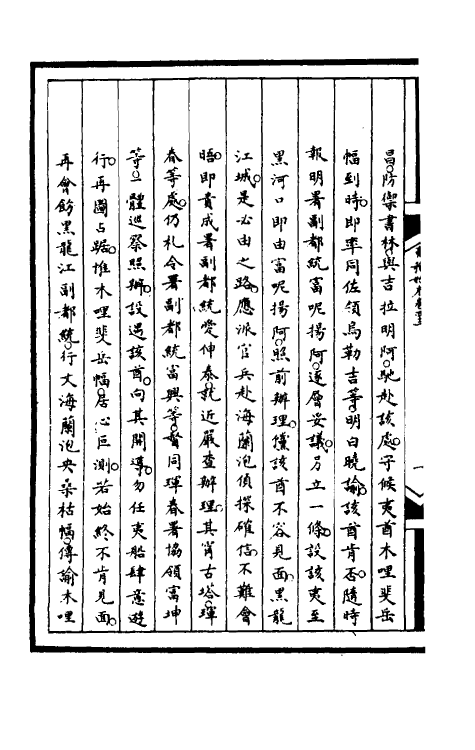 昌防禦書林與吉拉明阿馳赴該處守候夷酋木哩斐岳
幅到時即率同佐領烏勒吉等明白曉諭該酋肯否隨時
報明署副都統富呢揚阿遂層妥議另立一條設該夷至
黑河口即由富呢揚阿照前辦理儻該酋不容見面黑龍
江城是必由之路應派官兵赴海蘭泡偵探確信不難會
晤即責成署副都統愛伸泰就近嚴查辦理其甯古塔琿
春等處仍札令署副都統富興等督同琿春署協領富坤
等一體巡察照辦設遇該酋向其開導勿任夷船肆意遊
行再圖占踞惟木哩斐岳幅居心叵測若始終不肯見面
再會飭黑龍江副都統行文海蘭泡央桑枯幅傳諭木哩